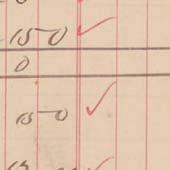 15 0 ✓
0
15 0 ✓